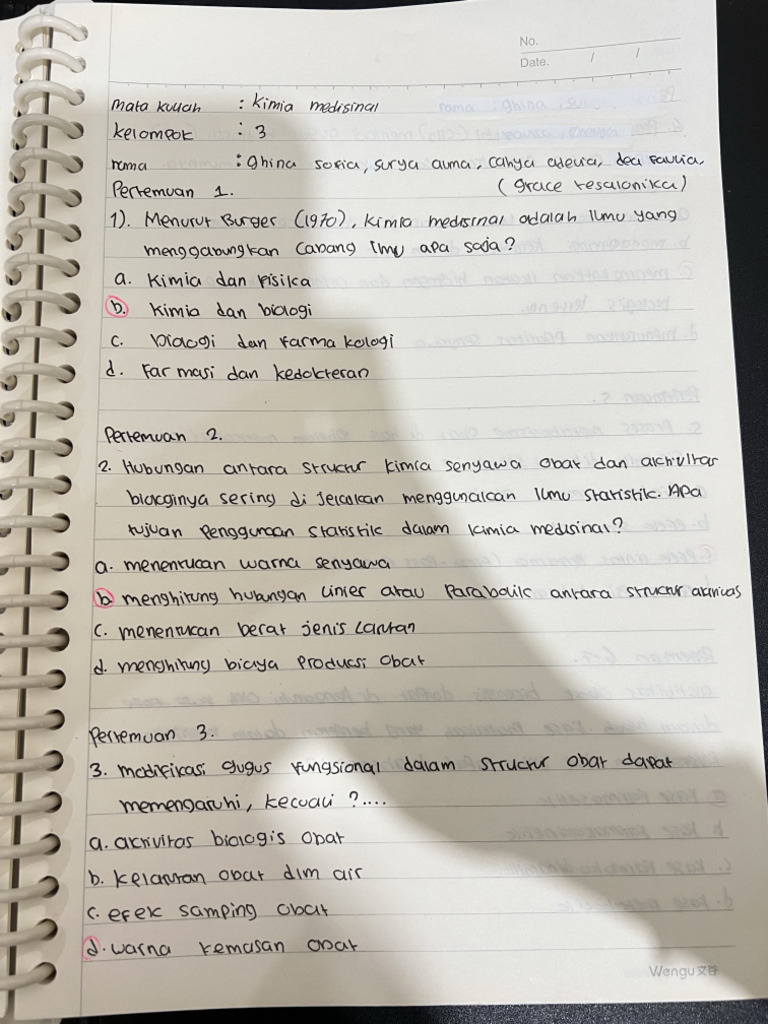 No.
Date. / /
mata kuliah : kimia medisinal
kelompok : 3
nama : ghina sofia, surya auma, cahya adevia, dea faulia,
Pertemuan 1. (grace tesalonika)
1). Menurut Burger (1970), kimia medisinal adalah ilmu yang
menggabungkan cabang ilmu apa saja?
a. kimia dan fisika
b. kimia dan biologi
c. biologi dan farmakologi
d. Farmasi dan kedokteran
Pertemuan 2.
2. Hubungan antara struktur kimia senyawa obat dan aktivitas
biologinya sering di jelaskan menggunakan ilmu statistik. Apa
tujuan penggunaan statistik dalam kimia medisinal?
a. menentukan warna senyawa
b. menghitung hubungan linier atau parabolik antara struktur aktivitas
c. menentukan berat jenis larutan
d. menghitung biaya produksi obat
Pertemuan 3.
3. modifikasi gugus fungsional dalam struktur obat dapat
memengaruhi, kecuali ?....
a. aktivitas biologis obat
b. kelarutan obat dlm air
c. efek samping obat
d. warna kemasan obat
Wengu文谷